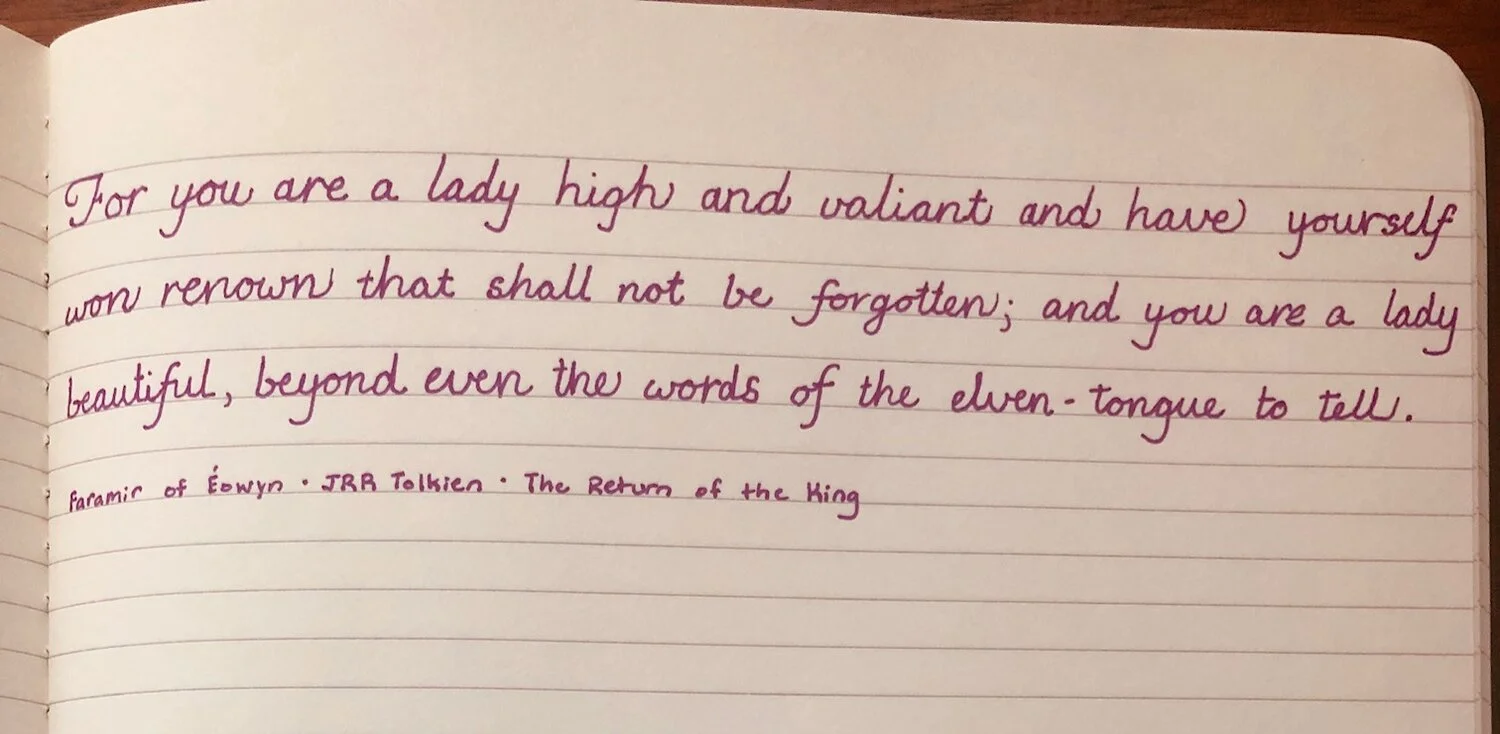 For you are a lady high and valiant and have yourself
won renown that shall not be forgotten; and you are a lady
beautiful, beyond even the words of the elven-tongue to tell.
Faramir of Éowyn · JRR Tolkien · The Return of the King